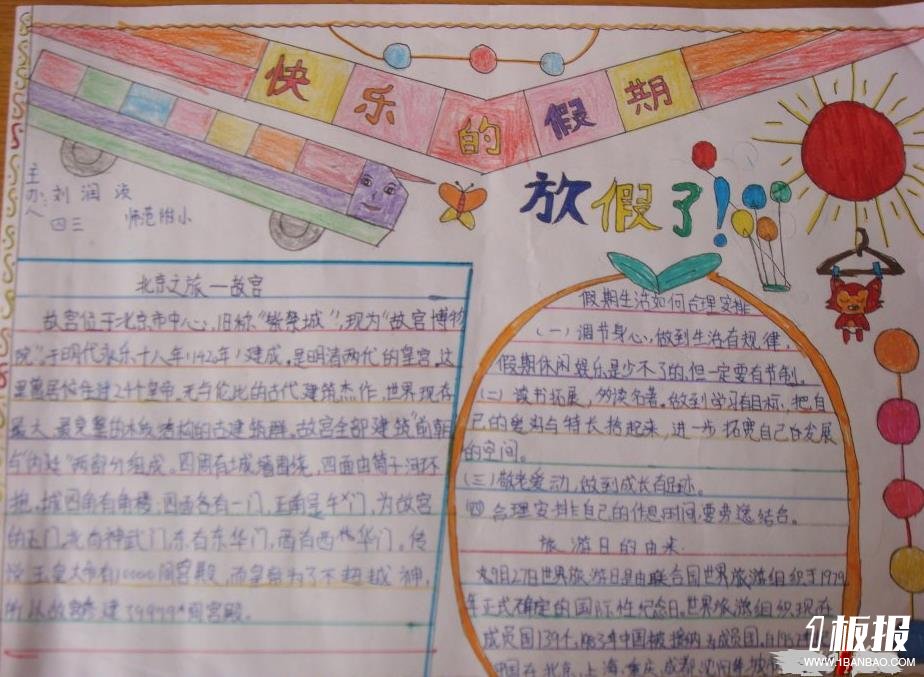 快乐的假期
放假了！
主办人：刘润
四三 师范附小
北京之旅—故宫
故宫位于北京市中心，旧称“紫禁城”，现为“故宫博物
院”，于明代永乐十八年(1420年)建成，是明清两代的皇宫，这
里曾居住过24个皇帝，无与伦比的古代建筑杰作，世界现存
最大、最完整的木质结构的古建筑群。故宫全部建筑“前朝
与“内廷”两部分组成。四周有城墙围绕，四面由筒子河环
抱，城四角有角楼：四面各有一门，正南是午门，为故宫
的正门，北有神武门，东有东华门，西有西华门。传
说玉皇大帝有10000间宫殿，而皇帝为了不超越神，
所以故宫修建了9999间宫殿。
假期生活如何合理安排
(一)调节身心，做到生活有规律，
假期休闲娱乐是少不了的，但一定要有节制。
(二)读书拓展，多读名著。做到学习有目标，把自
己的爱好与特长拾起来，进一步拓宽自己的发展
的空间。
(三)敬老爱动，做到成长有足迹。
四 合理安排自己的作息时间，要劳逸结合。
旅游日的由来
9月27日世界旅游日是由联合国世界旅游组织于1979
年正式确定的国际性纪念日。世界旅游组织现在
成员国139个，1983年中国被接纳为成员国，自
国在北京、上海、重庆、成都、沈阳
1板报
WWW.1BANBAO.COM